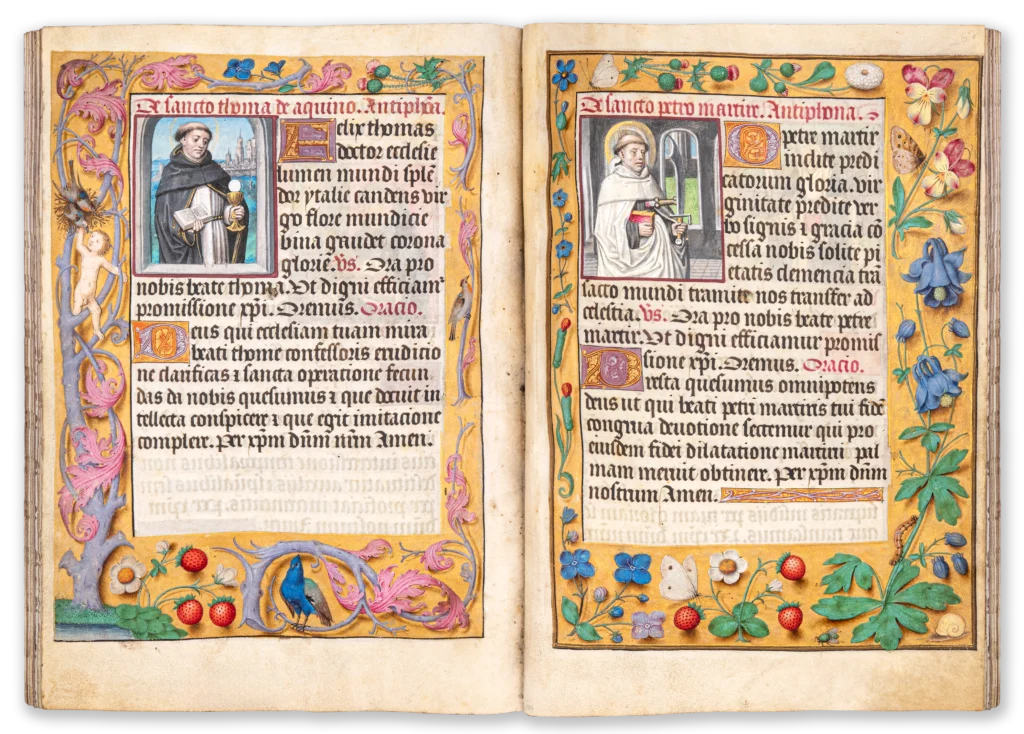 De sancto thoma de aquino. Antiphõa.
Felix thomas
doctor ecclesie
lumen mundi splẽ
dor ytalie candens vir
go flore mundicie
bina gaudet corona
glorie. vs. Ora pro
nobis beate thoma. Ut digni efficiamr
promissione xp̃i. Oremus. Oracio.
Deus qui ecclesiam tuam mira
beati thome confessoris erudicio
ne clarificas ⁊ sancta operatione fecun
das da nobis quesumus ⁊ que docuit in
tellecta conspicere ⁊ que egit imitatione
complere. Per xp̃m dñm nr̃m Amen.
De sancto petro martire. Antiphona.
O petre martir
inclite predi
catorum gloria. vir
ginitate predite ver
bo signis ⁊ gracia cõ
cessa nobis solite pi
etatis clemencia trã
sacto mundi tramite nos transfer ad
celestia. vs. Ora pro nobis beate petre
martir. Ut digni efficiamur promis
sione xp̃i. Oremus. Oracio.
Presta quesumus omnipotens
deus ut qui beati petri martiris tui fidẽ
congrua devotione sectemur qui pro
eiusdem fidei dilatatione martirii pal
mam meruit obtinere. Per xp̃m dñm
nostrum Amen.